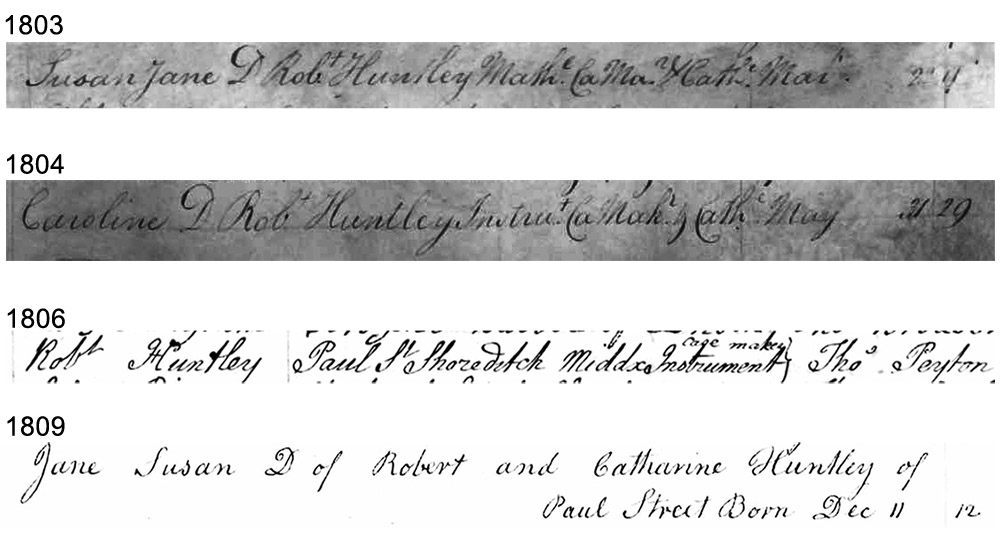 1803
Susan Jane D Robt Huntley Mathl. Ca Mar. & Cathe. Mar.
1804
Caroline D Robt Huntley Instrut. Ca Makr. & Cathe. May 31 29
1806
Robt Huntley Paul St Shoreditch Middx Instrument case maker Thos Peyton
1809
Jane Susan D of Robert and Catharine Huntley of
Paul Street Born Dec 11 12